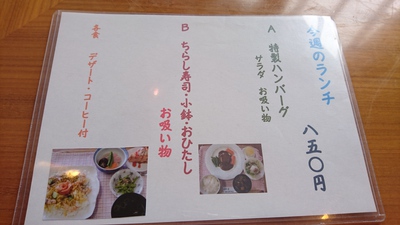 今週のランチ 八五〇円
A 特製ハンバーグ
サラダ お吸い物
B ちらし寿司・小鉢・おひたし
お吸い物
各食 デザート・コーヒー付